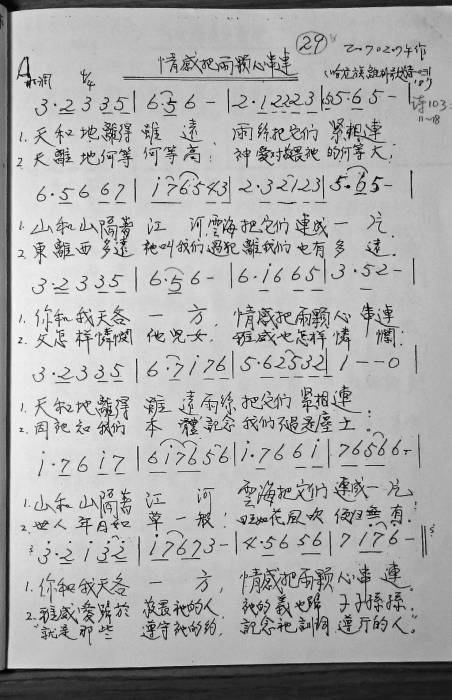 29
情感把兩顆心串連
A 調 4/4
(哈尼族雅
詩103:
11~18
3·2 3 3 5 | 6·5 6 - | 2·1 2 2 2 3 | 5·6 5 -
1. 天和地離得 雖 遠, 雨絲把它們 緊相連
2. 天離地何等 何等高; 神愛对敬畏祂 的何等大;
6·5 6 6 7 | i 7 6 5 4 3 | 2·3 2 1 2 3 | 5·6 5 -
1. 山和山隔着 江 河, 雲海把它們 連成一片.
2. 東離西多遠 祂叫我們过犯 離我們也有多 遠.
3·2 3 3 5 | 6·5 6 - | 6·i 6 6 5 | 3·5 2 -
1. 你和我天各 一 方, 情感把兩顆 心串連
2. 父怎样憐憫 他兒女, 雅威也怎样憐 憫;
3·2 3 3 5 | 6·7 i 7 6 | 5·6 2 5 3 2 | 1 - - 0
1. 天和地離得 雖 遠 雨絲把它們 緊相連
2. 因祂知我們 本 體, 記念我們 不過是塵土;
i·7 6 i 7 | 6 i 7 6 5 6 | i·7 6 6 i | 7 6 5 6 6 -
1. 山和山隔着 江 河 雲海把它們 連成一片
2. 世人 年日如 草一般; 如花風吹 便归無有;
3·2 i 3 2 | i 7 6 7 3 - | 4·5 6 5 6 | 7 i 7 6 -
1. 你和我天各 一 方, 情感把兩顆心串連.
2. 雅威愛歸於 敬畏祂的人 祂的義也歸 子子孫孫.
"就是那些 遵守祂的約, 記念祂訓詞 遵行的人"